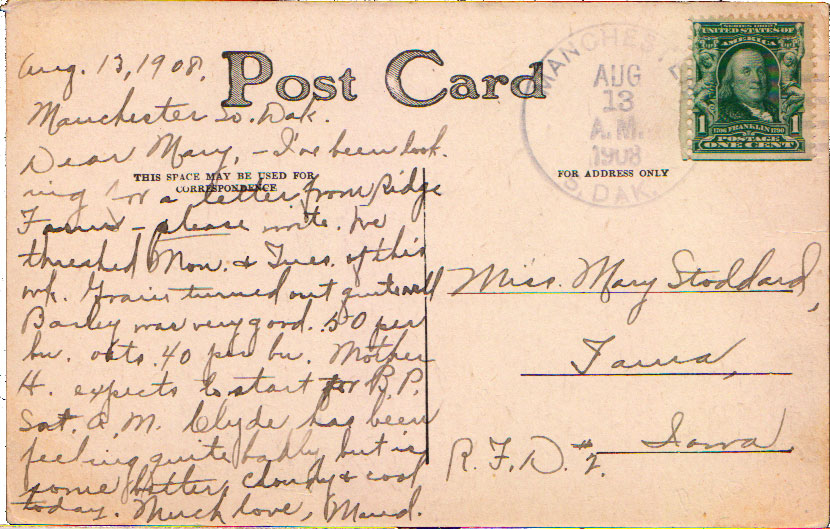 Aug. 13, 1908.
Post Card
Manchester So. Dak.
Dear Mary, - I've been look-
ing for a letter from Ridge
THIS SPACE MAY BE USED FOR
CORRESPONDENCE
Farm - please write. I've
threshed Mon. & Tues. of this
wk. Grain turned out quite well
Barley was very good. 50 per
bu. oats 40 per bu. Mother
H. expects to start for B.P.
Sat. A.M. Clyde has been
feeling quite badly but is
some better, cloudy & cool
today. Much love, Maud.
MANCHESTE
AUG
13
A.M.
1908
S. DAK.
SERIES 1902
UNITED STATES OF
AMERICA
1706 FRANKLIN 1790
1 POSTAGE 1
ONE CENT
FOR ADDRESS ONLY
Miss. Mary Stoddard,
Iowa,
R.F.D. #2. Iowa.